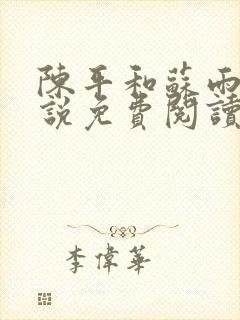 陳平和蘇雨
說免費閱讀
李偉華